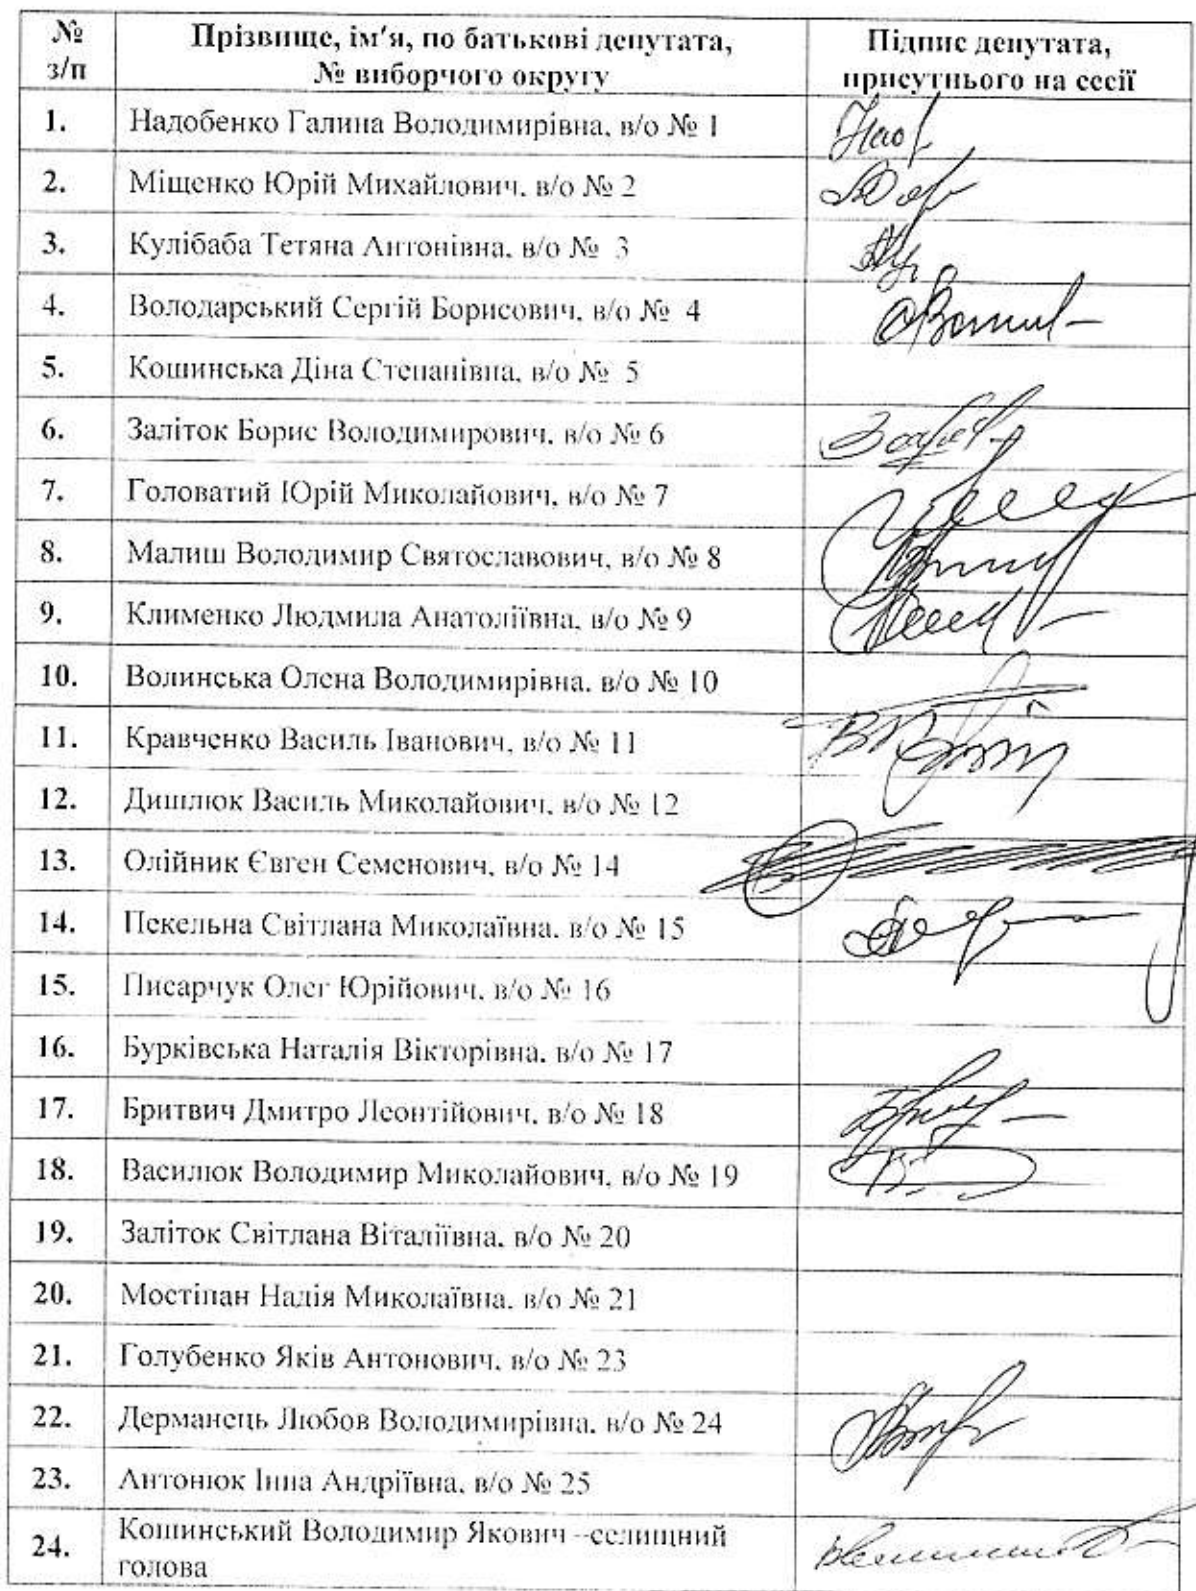 № з/п Прізвище, ім′я, по батькові депутата, № виборчого округу Підпис депутата, присутнього на сесії
1. Надобенко Галина Володимирівна, в/о № 1
2. Міщенко Юрій Михайлович, в/о № 2
3. Кулібаба Тетяна Антонівна, в/о № 3
4. Володарський Сергій Борисович, в/о № 4
5. Кошинська Діна Степанівна, в/о № 5
6. Заліток Борис Володимирович, в/о № 6
7. Головатий Юрій Миколайович, в/о № 7
8. Малиш Володимир Святославович, в/о № 8
9. Клименко Людмила Анатоліївна, в/о № 9
10. Волинська Олена Володимирівна, в/о № 10
11. Кравченко Василь Іванович, в/о № 11
12. Дишлюк Василь Миколайович, в/о № 12
13. Олійник Євген Семенович, в/о № 14
14. Пекельна Світлана Миколаївна, в/о № 15
15. Писарчук Олег Юрійович, в/о № 16
16. Бурківська Наталія Вікторівна, в/о № 17
17. Бритвич Дмитро Леонтійович, в/о № 18
18. Василюк Володимир Миколайович, в/о № 19
19. Заліток Світлана Віталіївна, в/о № 20
20. Мостіпан Надія Миколаївна, в/о № 21
21. Голубенко Яків Антонович, в/о № 23
22. Дерманець Любов Володимирівна, в/о № 24
23. Антонюк Інна Андріївна, в/о № 25
24. Кошинський Володимир Якович –селищний
голова